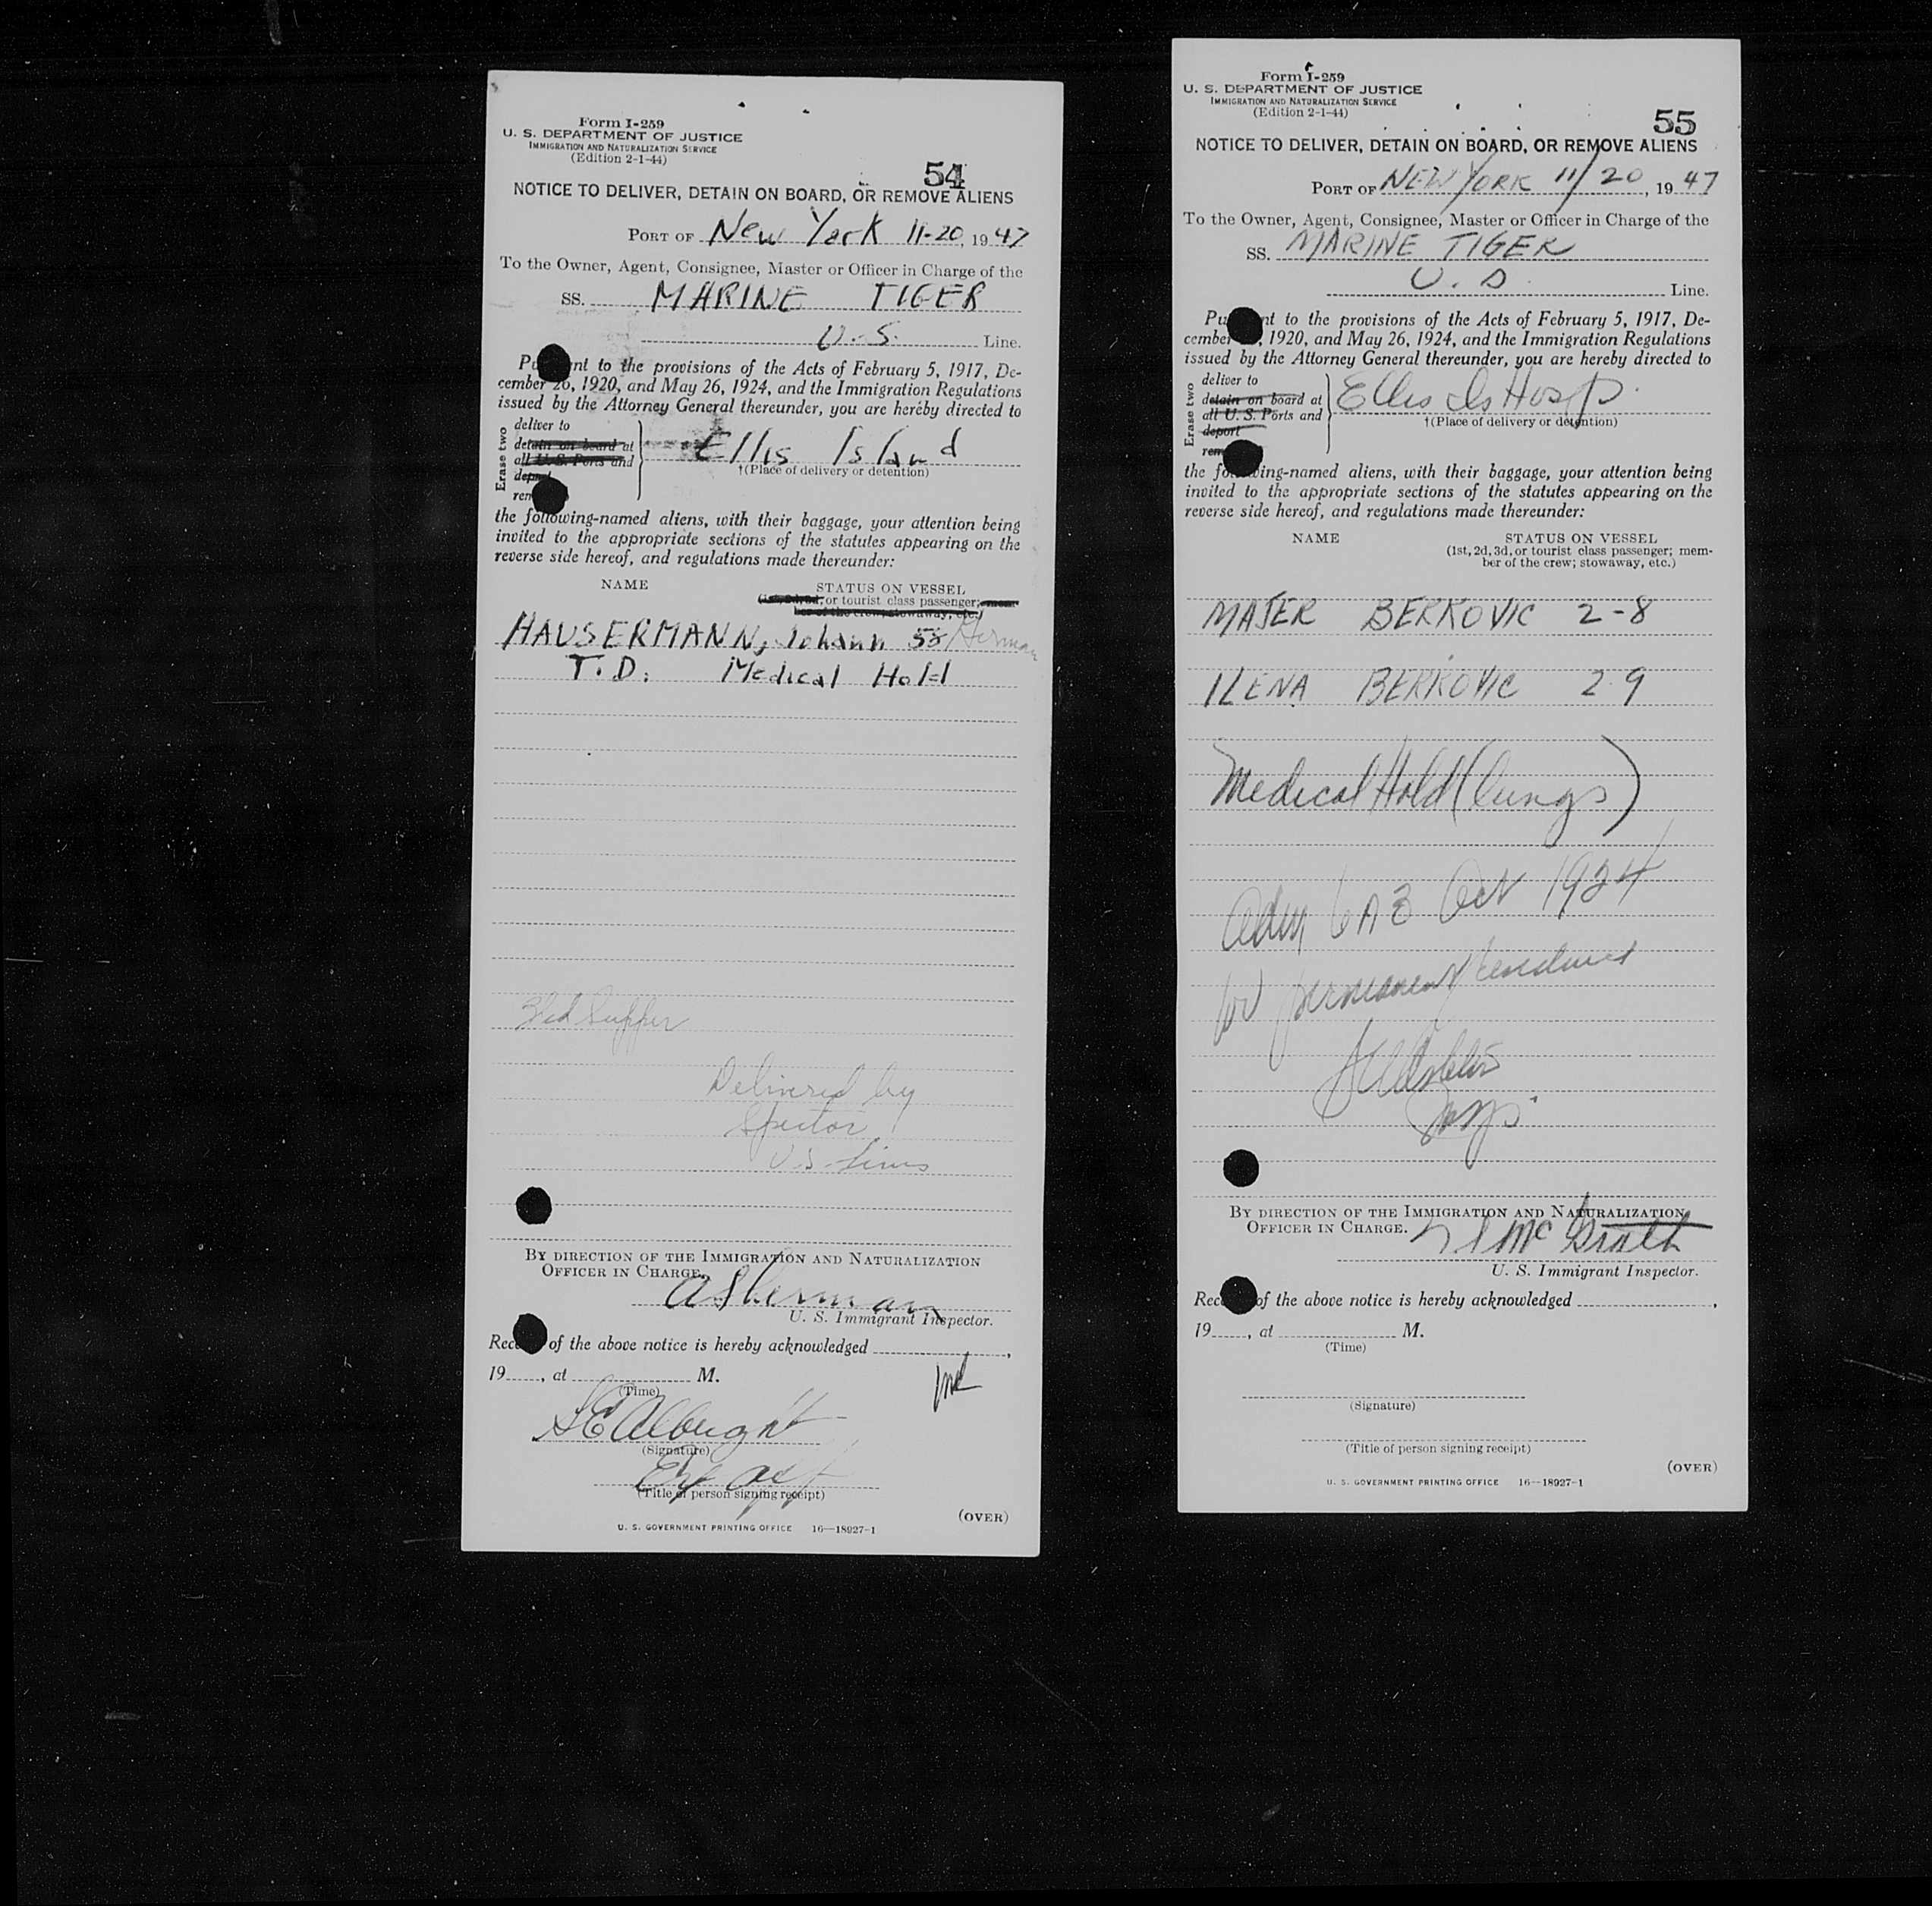 Form I-259
U. S. DEPARTMENT OF JUSTICE
IMMIGRATION AND NATURALIZATION SERVICE
(Edition 2-1-44)
54
NOTICE TO DELIVER, DETAIN ON BOARD, OR REMOVE ALIENS
PORT OF New York 11-20, 1947
To the Owner, Agent, Consignee, Master or Officer in Charge of the
SS. MARINE TIGER
U.S. Line.
nt to the provisions of the Acts of February 5, 1917, De-
cember 26, 1920, and May 26, 1924, and the Immigration Regulations
issued by the Attorney General thereunder, you are hereby directed to
Erase two
deliver to
detain on board at
all U. S. Ports and
Ellis Island
†(Place of delivery or detention)
the following-named aliens, with their baggage, your attention being
invited to the appropriate sections of the statutes appearing on the
reverse side hereof, and regulations made thereunder:
NAME STATUS ON VESSEL
or tourist class passenger;
ber of the crew; stowaway, etc.)
HAUSERMANN, Johann 58 German
T.D. Medical Hold
Supper
Delivered by
Spector
U.S. Lines
BY DIRECTION OF THE IMMIGRATION AND NATURALIZATION
OFFICER IN CHARGE.
A Sherman
U. S. Immigrant Inspector.
of the above notice is hereby acknowledged
19 , at M.
(Time)
S E Albright
(Signature)
(Title of person signing receipt)
(OVER)
U. S. GOVERNMENT PRINTING OFFICE 16—18927-1
Form I-259
U. S. DEPARTMENT OF JUSTICE
IMMIGRATION AND NATURALIZATION SERVICE
(Edition 2-1-44)
55
NOTICE TO DELIVER, DETAIN ON BOARD, OR REMOVE ALIENS
PORT OF NEW YORK 11/20, 1947
To the Owner, Agent, Consignee, Master or Officer in Charge of the
SS. MARINE TIGER
U.S. Line.
nt to the provisions of the Acts of February 5, 1917, De-
cember , 1920, and May 26, 1924, and the Immigration Regulations
issued by the Attorney General thereunder, you are hereby directed to
Erase two
deliver to
detain on board at
all U. S. Ports and
deport
Ellis Is Hosp.
†(Place of delivery or detention)
the following-named aliens, with their baggage, your attention being
invited to the appropriate sections of the statutes appearing on the
reverse side hereof, and regulations made thereunder:
NAME STATUS ON VESSEL
(1st, 2d, 3d, or tourist class passenger; mem-
ber of the crew; stowaway, etc.)
MAJER BERKOVIC 2-8
ILENA BERKOVIC 2 9
Medical Hold (lungs)
Adm 6A3 Oct 1924
for permanent residence
BY DIRECTION OF THE IMMIGRATION AND NATURALIZATION
OFFICER IN CHARGE.
McGrath
U. S. Immigrant Inspector.
of the above notice is hereby acknowledged
19 , at M.
(Time)
(Signature)
(Title of person signing receipt)
(OVER)
U. S. GOVERNMENT PRINTING OFFICE 16—18927-1